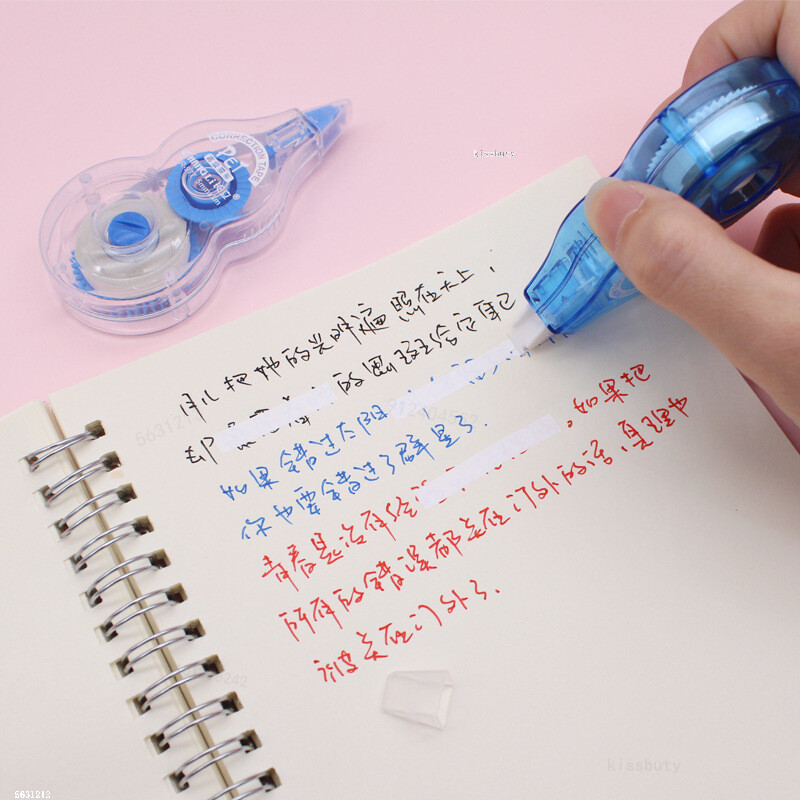 CORRECTION TAPE
PET
kissbuty
月儿把她的光明遍照在天上,
却 的黑斑给它自己
如果错过太阳
你也要错过了群星了.
青春是没有经 。如果把
所有的错误都关在门外的话,真理也
被关在门外了.
kissbuty
5631212